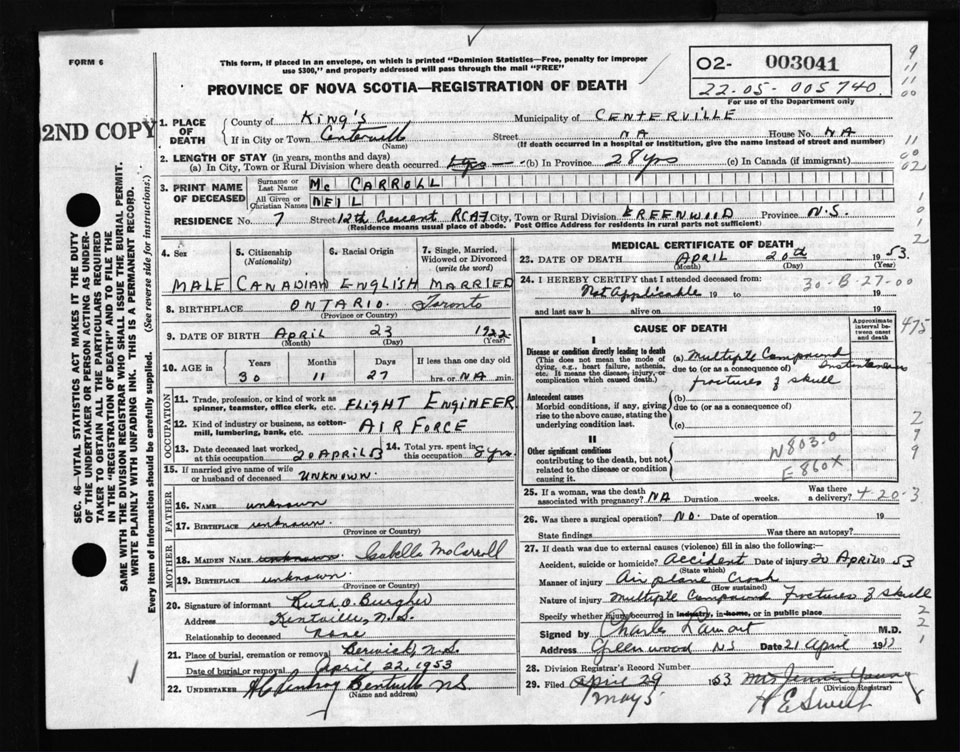 FORM 6
This form, if placed in an envelope, on which is printed "Dominion Statistics—Free, penalty for improper
use $300," and properly addressed will pass through the mail "FREE"
02- 003041
22-05-005740.
For use of the Department only
PROVINCE OF NOVA SCOTIA—REGISTRATION OF DEATH
2ND COPY
1. PLACE OF DEATH
County of King's Municipality of CENTERVILLE
If in City or Town Centerville Street NA House No. NA
(Name) (If death occurred in a hospital or institution, give the name instead of street and number)
2. LENGTH OF STAY (in years, months and days)
(a) In City, Town or Rural Division where death occurred (b) In Province 28 yrs (c) In Canada (if immigrant)
3. PRINT NAME OF DECEASED
Surname or Last Name McCARROLL
All Given or Christian Names NEIL
RESIDENCE No. 7 Street 12th Crescent RCAF City, Town or Rural Division GREENWOOD Province N.S.
(Residence means usual place of abode. Post Office Address for residents in rural parts not sufficient)
4. Sex 5. Citizenship (Nationality) 6. Racial Origin 7. Single, Married, Widowed or Divorced (write the word)
MALE CANADIAN ENGLISH MARRIED
8. BIRTHPLACE ONTARIO Toronto
(Province or Country)
9. DATE OF BIRTH April 23 1922
(Month) (Day) (Year)
10. AGE in Years Months Days If less than one day old
30 11 27 hrs. or NA min.
OCCUPATION
11. Trade, profession, or kind of work as spinner, teamster, office clerk, etc. FLIGHT ENGINEER
12. Kind of industry or business, as cotton-mill, lumbering, bank, etc. AIR FORCE
13. Date deceased last worked at this occupation 20 APRIL 53 14. Total yrs. spent in this occupation 8 yrs.
15. If married give name of wife or husband of deceased UNKNOWN.
FATHER
16. Name unknown
17. Birthplace unknown.
(Province or Country)
MOTHER
18. Maiden Name unknown. Isabella McCarroll
19. Birthplace unknown
(Province or Country)
20. Signature of informant Ruth O. Burgher
Address Kentville, N.S.
Relationship to deceased None
21. Place of burial, cremation or removal Berwick, N.S.
Date of burial or removal April 22, 1953
22. UNDERTAKER N.S.
(Name and address)
MEDICAL CERTIFICATE OF DEATH
23. DATE OF DEATH APRIL 20th 1953.
(Month) (Day) (Year)
24. I HEREBY CERTIFY that I attended deceased from: 30-B-27-00
Not Applicable 19 to 19
and last saw h alive on 19
CAUSE OF DEATH
Approximate interval between onset and death
475
I
Disease or condition directly leading to death
(This does not mean the mode of dying, e.g., heart failure, asthenia, etc. It means the disease, injury, or complication which caused death.)
(a) Multiple Compound
due to (or as a consequence of) Instantaneous
fractures of skull
Antecedent causes
Morbid conditions, if any, giving rise to the above cause, stating the underlying condition last.
(b)
due to (or as a consequence of)
(c)
II
Other significant conditions
contributing to the death, but not related to the disease or condition causing it.
N803.0
E860X
25. If a woman, was the death associated with pregnancy? NA Duration weeks. Was there a delivery? 4-20-3
26. Was there a surgical operation? NO. Date of operation 19
State findings Was there an autopsy?
27. If death was due to external causes (violence) fill in also the following:—
Accident, suicide or homicide? Accident Date of injury 20 APRIL 1953
(State which)
Manner of injury Airplane Crash
(How sustained)
Nature of injury Multiple Compound fractures of skull
Specify whether injury occurred in industry, in home, or in public place
Signed by Charles Lamont M.D.
Address Greenwood NS Date 21 April 1953
28. Division Registrar's Record Number
29. Filed April 29 1953 Mrs Jennie Young
(Division Registrar)
May 5 H E Swift
SEC. 46—VITAL STATISTICS ACT MAKES IT THE DUTY
OF THE UNDERTAKER OR PERSON ACTING AS UNDER-
TAKER TO OBTAIN ALL THE PARTICULARS REQUIRED
IN THE "REGISTRATION OF DEATH" AND TO FILE THE
SAME WITH THE DIVISION REGISTRAR WHO SHALL ISSUE THE BURIAL PERMIT.
WRITE PLAINLY WITH UNFADING INK. THIS IS A PERMANENT RECORD.
Every item of information should be carefully supplied. (See reverse side for instructions.)